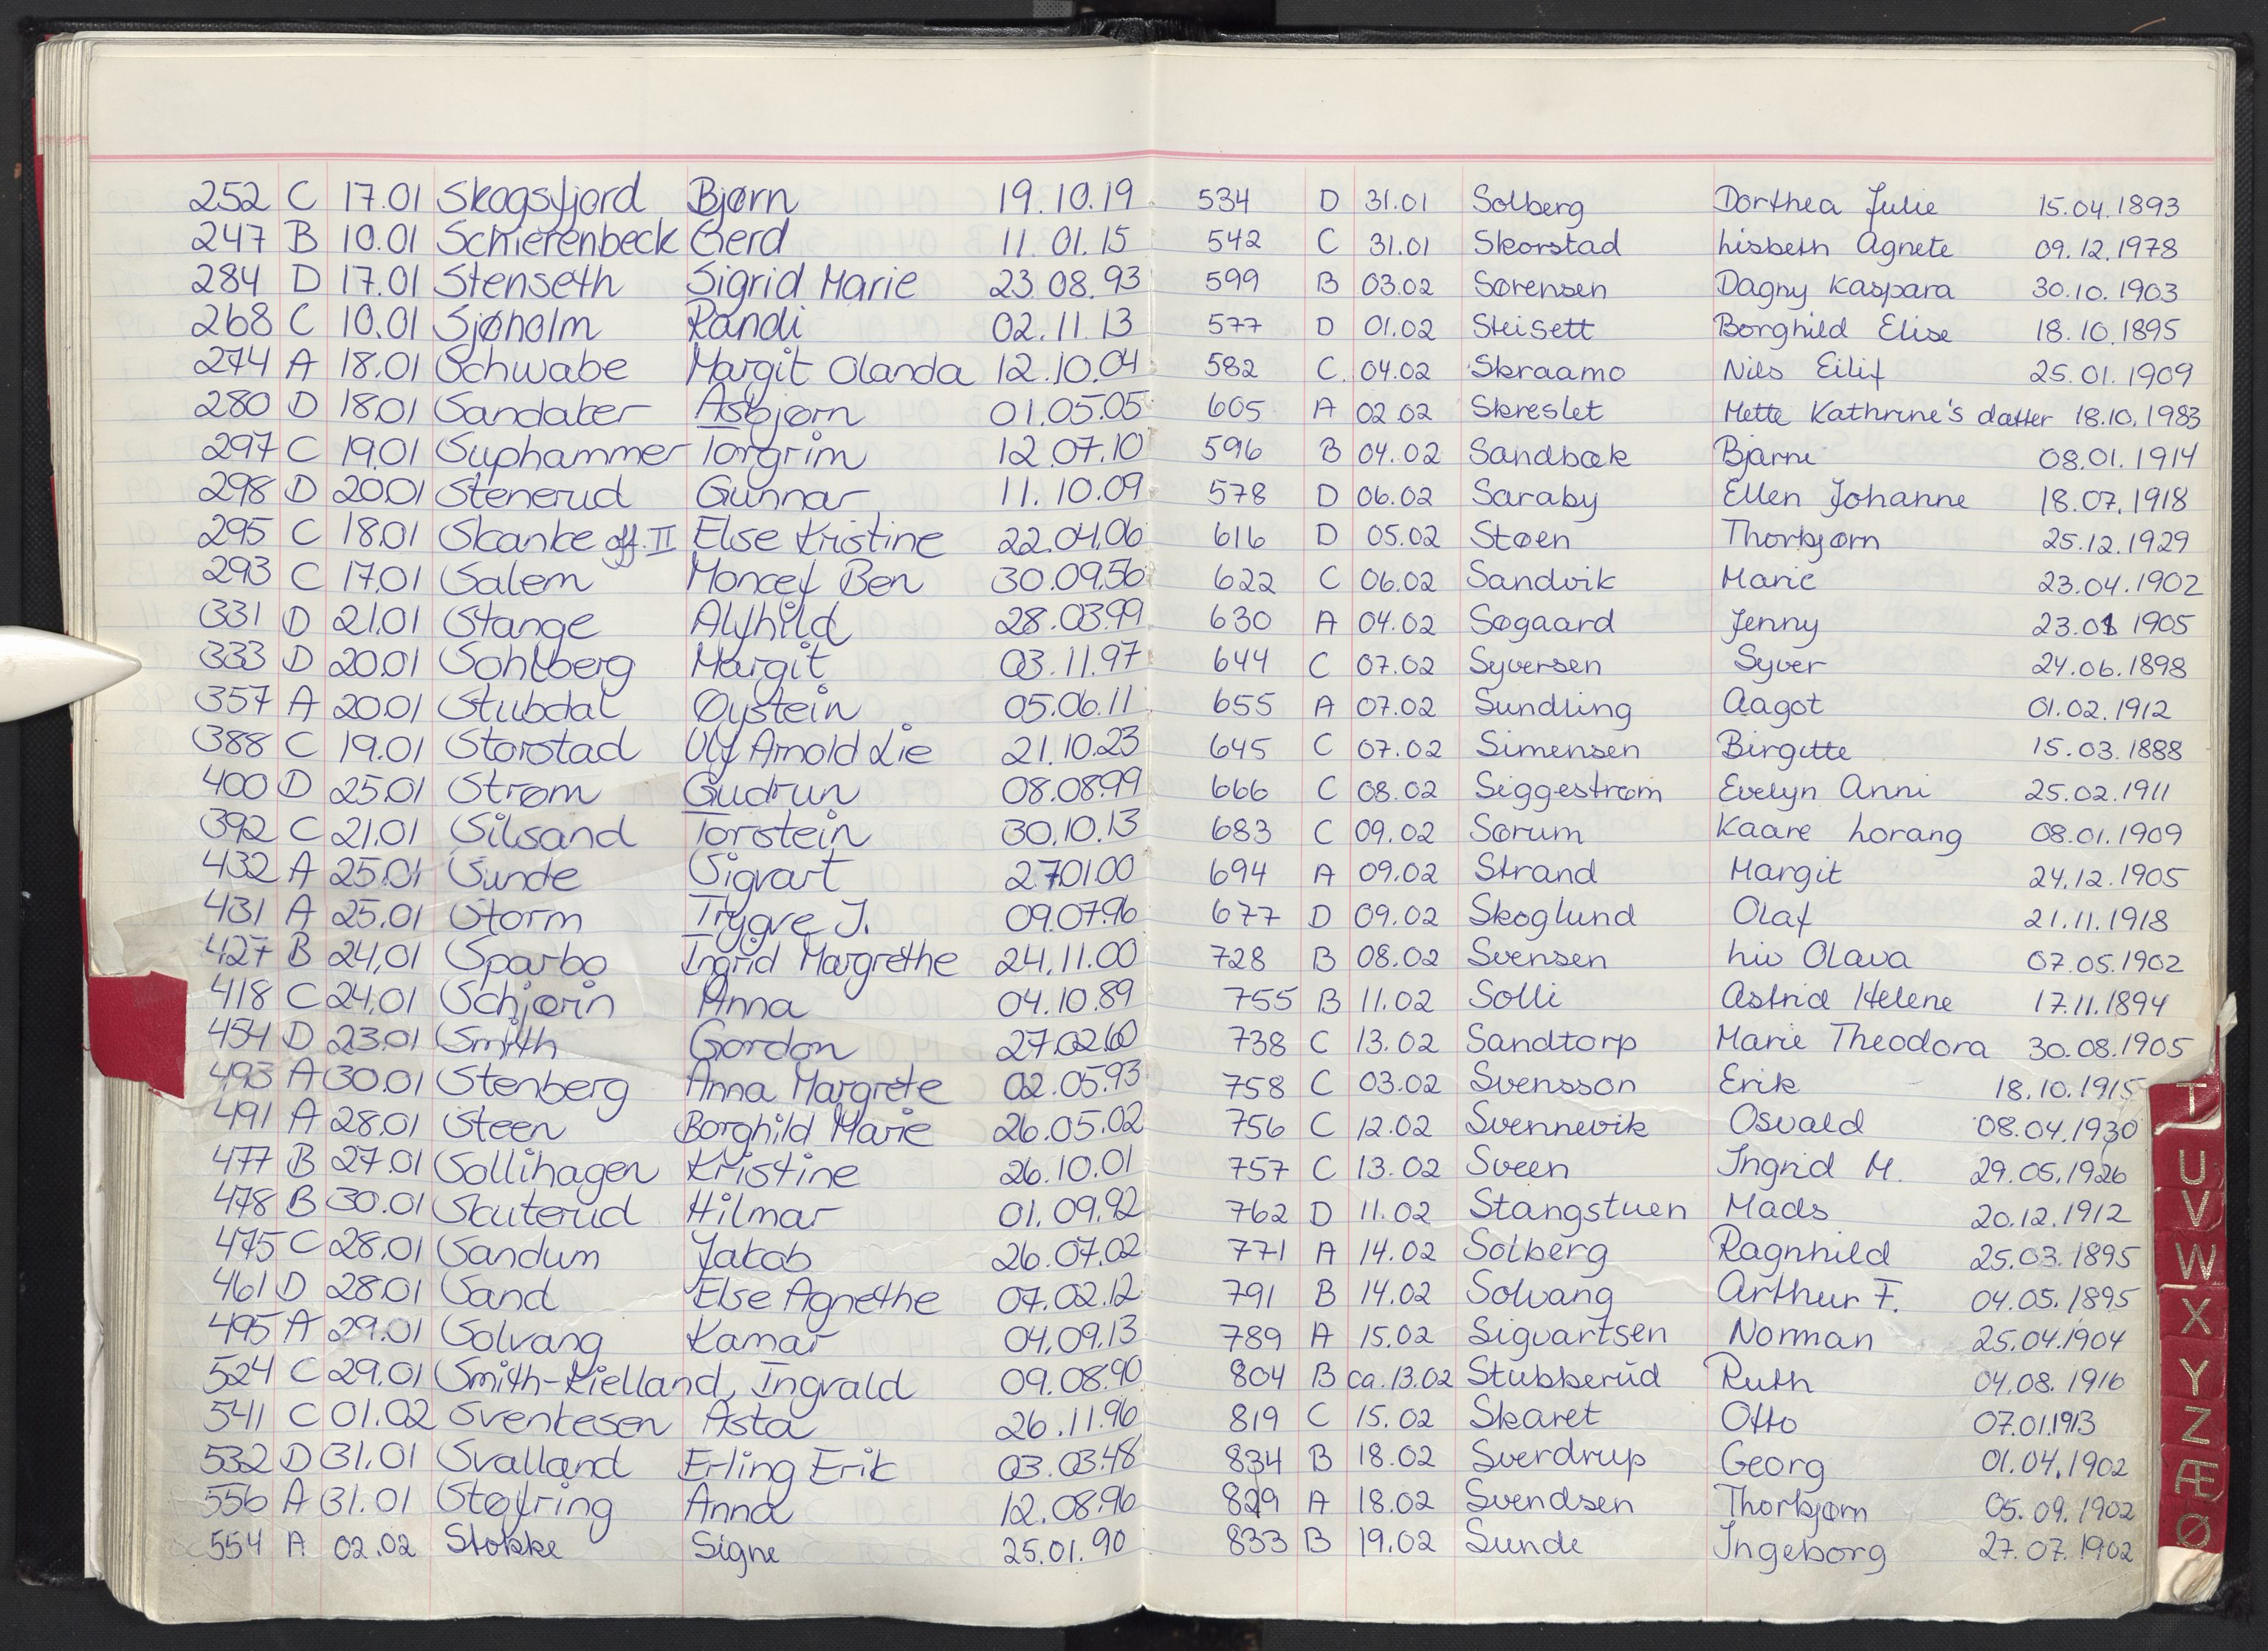 252 C 17.01 Skogsfjord Bjørn 19.10.19
247 B 10.01 Schierenbeck Gerd 11.01.15
284 D 17.01 Stenseth Sigrid Marie 23.08.93
268 C 10.01 Sjøholm Randi 02.11.13
274 A 18.01 Schwabe Margit Olanda 12.10.04
280 D 18.01 Sandaker Asbjørn 01.05.05
297 C 19.01 Suphammer Torgrim 12.07.10
298 D 20.01 Stenerud Gunnar 11.10.09
295 C 18.01 Skanke off. II Else Kristine 22.04.06
293 C 17.01 Salem Moncef Ben 30.09.56
331 D 21.01 Stange Alfhild 28.03.99
333 D 20.01 Sohlberg Margit 03.11.97
357 A 20.01 Stubdal Øystein 05.06.11
388 C 19.01 Storstad Ulf Arnold Lie 21.10.23
400 D 25.01 Strøm Gudrun 08.08.99
392 C 21.01 Silsand Torstein 30.10.13
432 A 25.01 Sunde Sigvart 27.01.00
431 A 25.01 Storm Trygve J. 09.07.96
427 B 24.01 Sparbo Ingrid Margrethe 24.11.00
418 C 24.01 Schjørin Anna 04.10.89
454 D 23.01 Smith Gordon 27.02.60
493 A 30.01 Stenberg Anna Margrete 02.05.93
491 A 28.01 Steen Borghild Marie 26.05.02
477 B 27.01 Sollihagen Kristine 26.10.01
478 B 30.01 Skuterud Hilmar 01.09.92
475 C 28.01 Sandum Jakob 26.07.02
461 D 28.01 Sand Else Agnethe 07.02.12
495 A 29.01 Solvang Kamar 04.09.13
524 C 29.01 Smith-Kielland, Ingvald 09.08.90
541 C 01.02 Svenkesen Asta 26.11.96
532 D 31.01 Svalland Erling Erik 03.03.48
556 A 31.01 Støfring Anna 12.08.96
554 A 02.02 Stokke Signe 25.01.90
534 D 31.01 Solberg Dorthea Julie 15.04.1893
542 C 31.01 Skorstad Lisbeth Agnete 09.12.1978
599 B 03.02 Sørensen Dagny Kaspara 30.10.1903
577 D 01.02 Skisett Borghild Elise 18.10.1895
582 C. 04.02 Skraamo Nils Eilif 25.01.1909
605 A 02.02 Skreslet Mette Kathrine's datter 18.10.1983
596 B 04.02 Sandbæk Bjarne 08.01.1914
578 D 06.02 Saraby Ellen Johanne 18.07.1918
616 D 05.02 Støen Thorbjørn 25.12.1929
622 C 06.02 Sandvik Marie 23.04.1902
630 A 04.02 Søgaard Jenny 23.01 1905
644 C 07.02 Syversen Syver 24.06.1898
655 A 07.02 Sundling Aagot 01.02.1912
645 C 07.02 Simensen Birgitte 15.03.1888
666 C 08.02 Siggestrøm Evelyn Anni 25.02.1911
683 C 09.02 Sørum Kaare Lorang 08.01.1909
694 A 09.02 Strand Margit 24.12.1905
677 D 09.02 Skoglund Olaf 21.11.1918
728 B 08.02 Svensen Liv Olava 07.05.1902
755 B 11.02 Solli Astrid Helene 17.11.1894
738 C 13.02 Sandtorp Marie Theodora 30.08.1905
758 C 03.02 Svensson Erik 18.10.1915
756 C 12.02 Svennevik Osvald 08.04.1930
757 C 13.02 Sveen Ingrid M. 29.05.1926
762 D 11.02 Stangstuen Mads 20.12.1912
771 A 14.02 Solberg Ragnhild 25.03.1895
791 B 14.02 Solvang Arthur F. 04.05.1895
789 A 15.02 Sigvartsen Norman 25.04.1904
804 B ca.13.02 Stubberud Ruth 04.08.1916
819 C 15.02 Skaret Otto 07.01.1913
834 B 18.02 Sverdrup Georg 01.04.1902
829 A 18.02 Svendsen Thorbjørn 05.09.1902
833 B 19.02 Sunde Ingeborg 27.07.1902
T
U
V
W
X
Y
Z
Æ
Ø